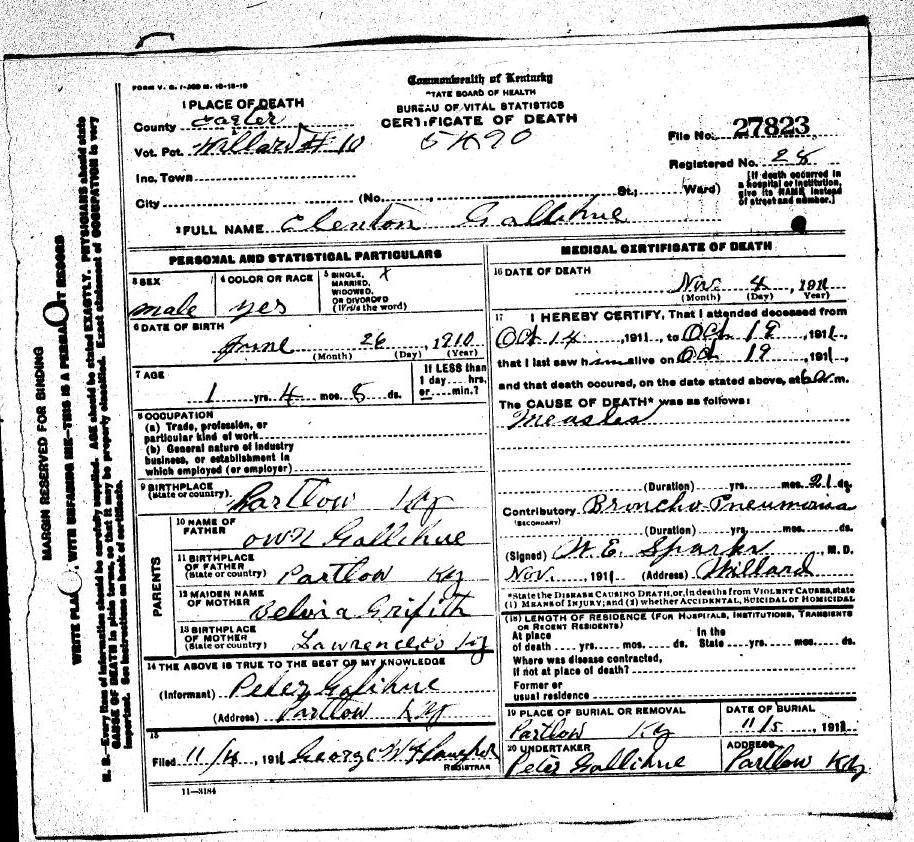 FORM V. S. 1-
Commonwealth of Kentucky
TATE BOARD OF HEALTH
BUREAU OF VITAL STATISTICS
CERTIFICATE OF DEATH
1 PLACE OF DEATH
County Carter
Vot. Pct. Willard # 10
Inc. Town
City (No. St.; Ward)
File No. 27823
Registered No. 28
[If death occurred in a hospital or institution, give its NAME instead of street and number.]
2 FULL NAME Clenton Gallihue
PERSONAL AND STATISTICAL PARTICULARS
3 SEX
male
4 COLOR OR RACE
yes
5 SINGLE, MARRIED, WIDOWED, OR DIVORCED (Write the word)
6 DATE OF BIRTH
June 26, 1910
(Month) (Day) (Year)
7 AGE
1 yrs. 4 mos. 8 ds.
If LESS than 1 day hrs. or min.?
8 OCCUPATION
(a) Trade, profession, or particular kind of work
(b) General nature of industry business, or establishment in which employed (or employer)
9 BIRTHPLACE (State or country) Partlow Ky
PARENTS
10 NAME OF FATHER
Own Gallihue
11 BIRTHPLACE OF FATHER (State or country) Partlow Ky
12 MAIDEN NAME OF MOTHER
Belvia Grifith
13 BIRTHPLACE OF MOTHER (State or country) Lawrence Co Ky
14 THE ABOVE IS TRUE TO THE BEST OF MY KNOWLEDGE
(Informant) Peter Galihue
(Address) Partlow Ky
15
Filed 11/4, 1911 George W
REGISTRAR
11-3184
MEDICAL CERTIFICATE OF DEATH
16 DATE OF DEATH
Nov. 4, 1911
(Month) (Day) Year)
17 I HEREBY CERTIFY, That I attended deceased from
Oct 14, 1911, to Oct 19, 1911,
that I last saw him alive on Oct 19, 1911,
and that death occured, on the date stated above, at 6 a. m.
The CAUSE OF DEATH* was as follows:
Measles
(Duration) yrs. mos. 21 ds.
Contributory Broncho Pneumonia
(SECONDARY)
(Duration) yrs. mos. ds.
(Signed) W. E. Sparks, M. D.
Nov., 1911 (Address) Willard
*State the DISEASE CAUSING DEATH, or, in deaths from VIOLENT CAUSES, state
(1) MEANS OF INJURY; and (2) whether ACCIDENTAL, SUICIDAL OR HOMICIDAL
(18) LENGTH OF RESIDENCE (FOR HOSPITALS, INSTITUTIONS, TRANSIENTS OR RECENT RESIDENTS)
At place of death yrs. mos. ds. In the State yrs. mos. ds.
Where was disease contracted, if not at place of death?
Former or usual residence
19 PLACE OF BURIAL OR REMOVAL
Partlow Ky
DATE OF BURIAL
11/5, 1911
20 UNDERTAKER
Peter Gallihue
ADDRESS
Partlow Ky
MARGIN RESERVED FOR BINDING
WRITE PLA WITH UNFADING INK—THIS IS A PERMA T RECORD
N. B.—Every item of information should be carefully supplied. AGE should be stated EXACTLY. PHYSICIANS should state
CAUSE OF DEATH in plain terms, so that it may be properly classified. Exact statement of OCCUPATION is very
important. See instructions on back of certificate.